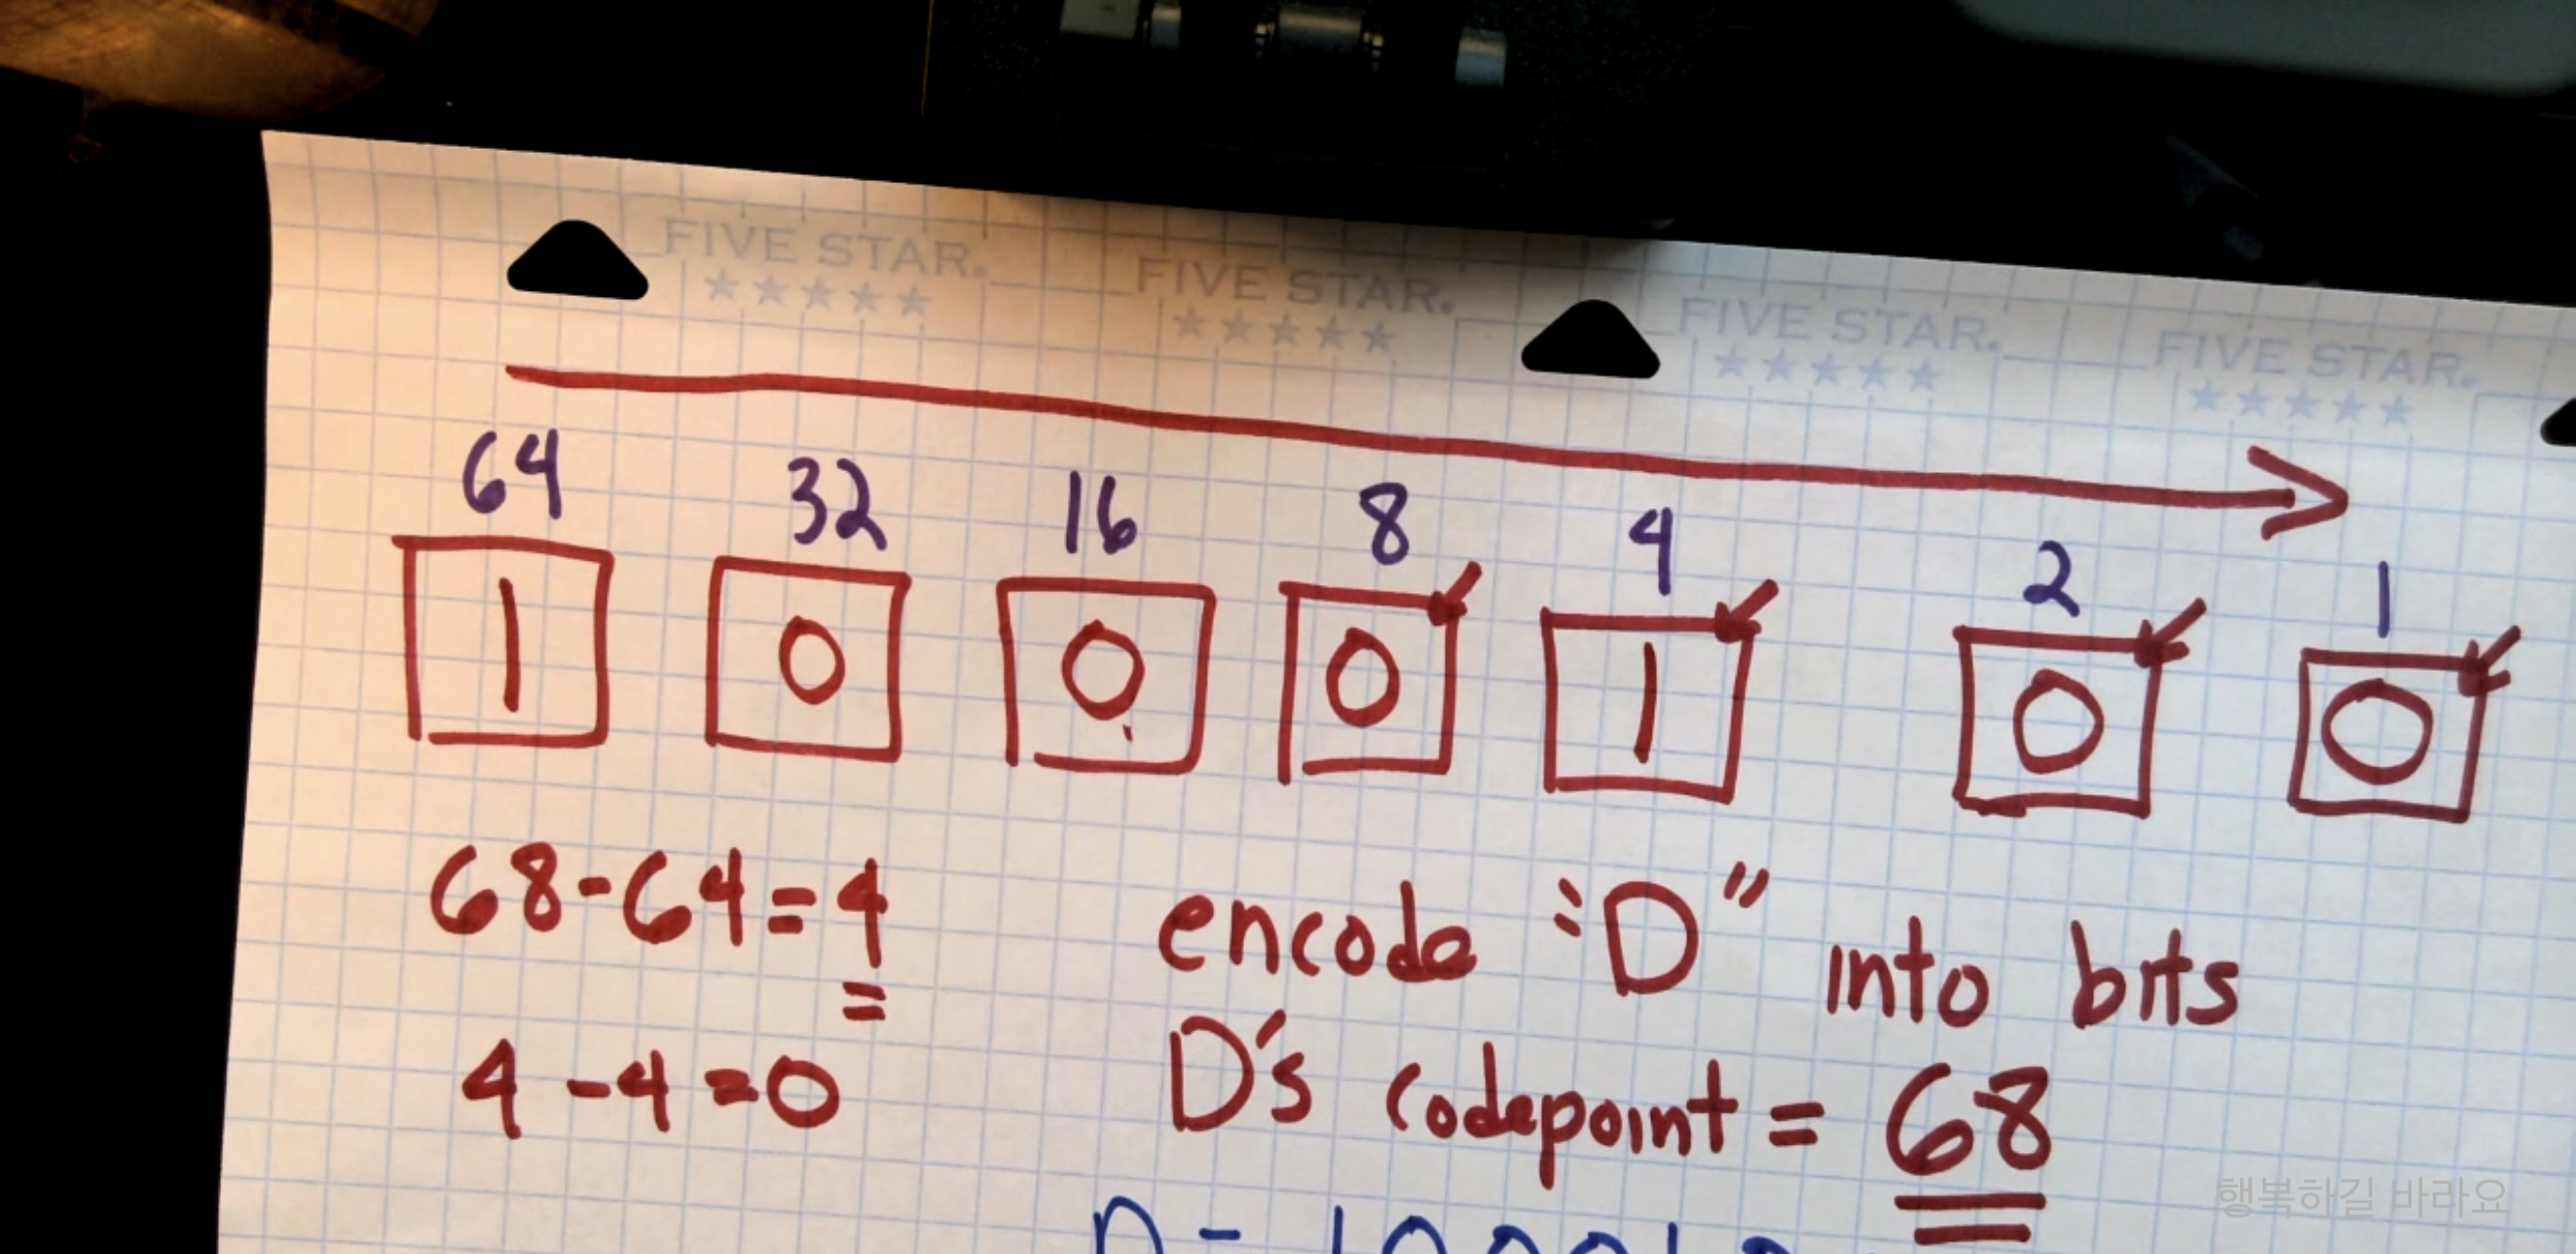 FIVE STAR. FIVE STAR. FIVE STAR. FIVE STAR.
64 32 16 8 4 2 1
1 0 0 0 1 0 0
68-64=4
=
4-4=0
encode "D" into bits
D's codepoint = 68
행복하길 바라요